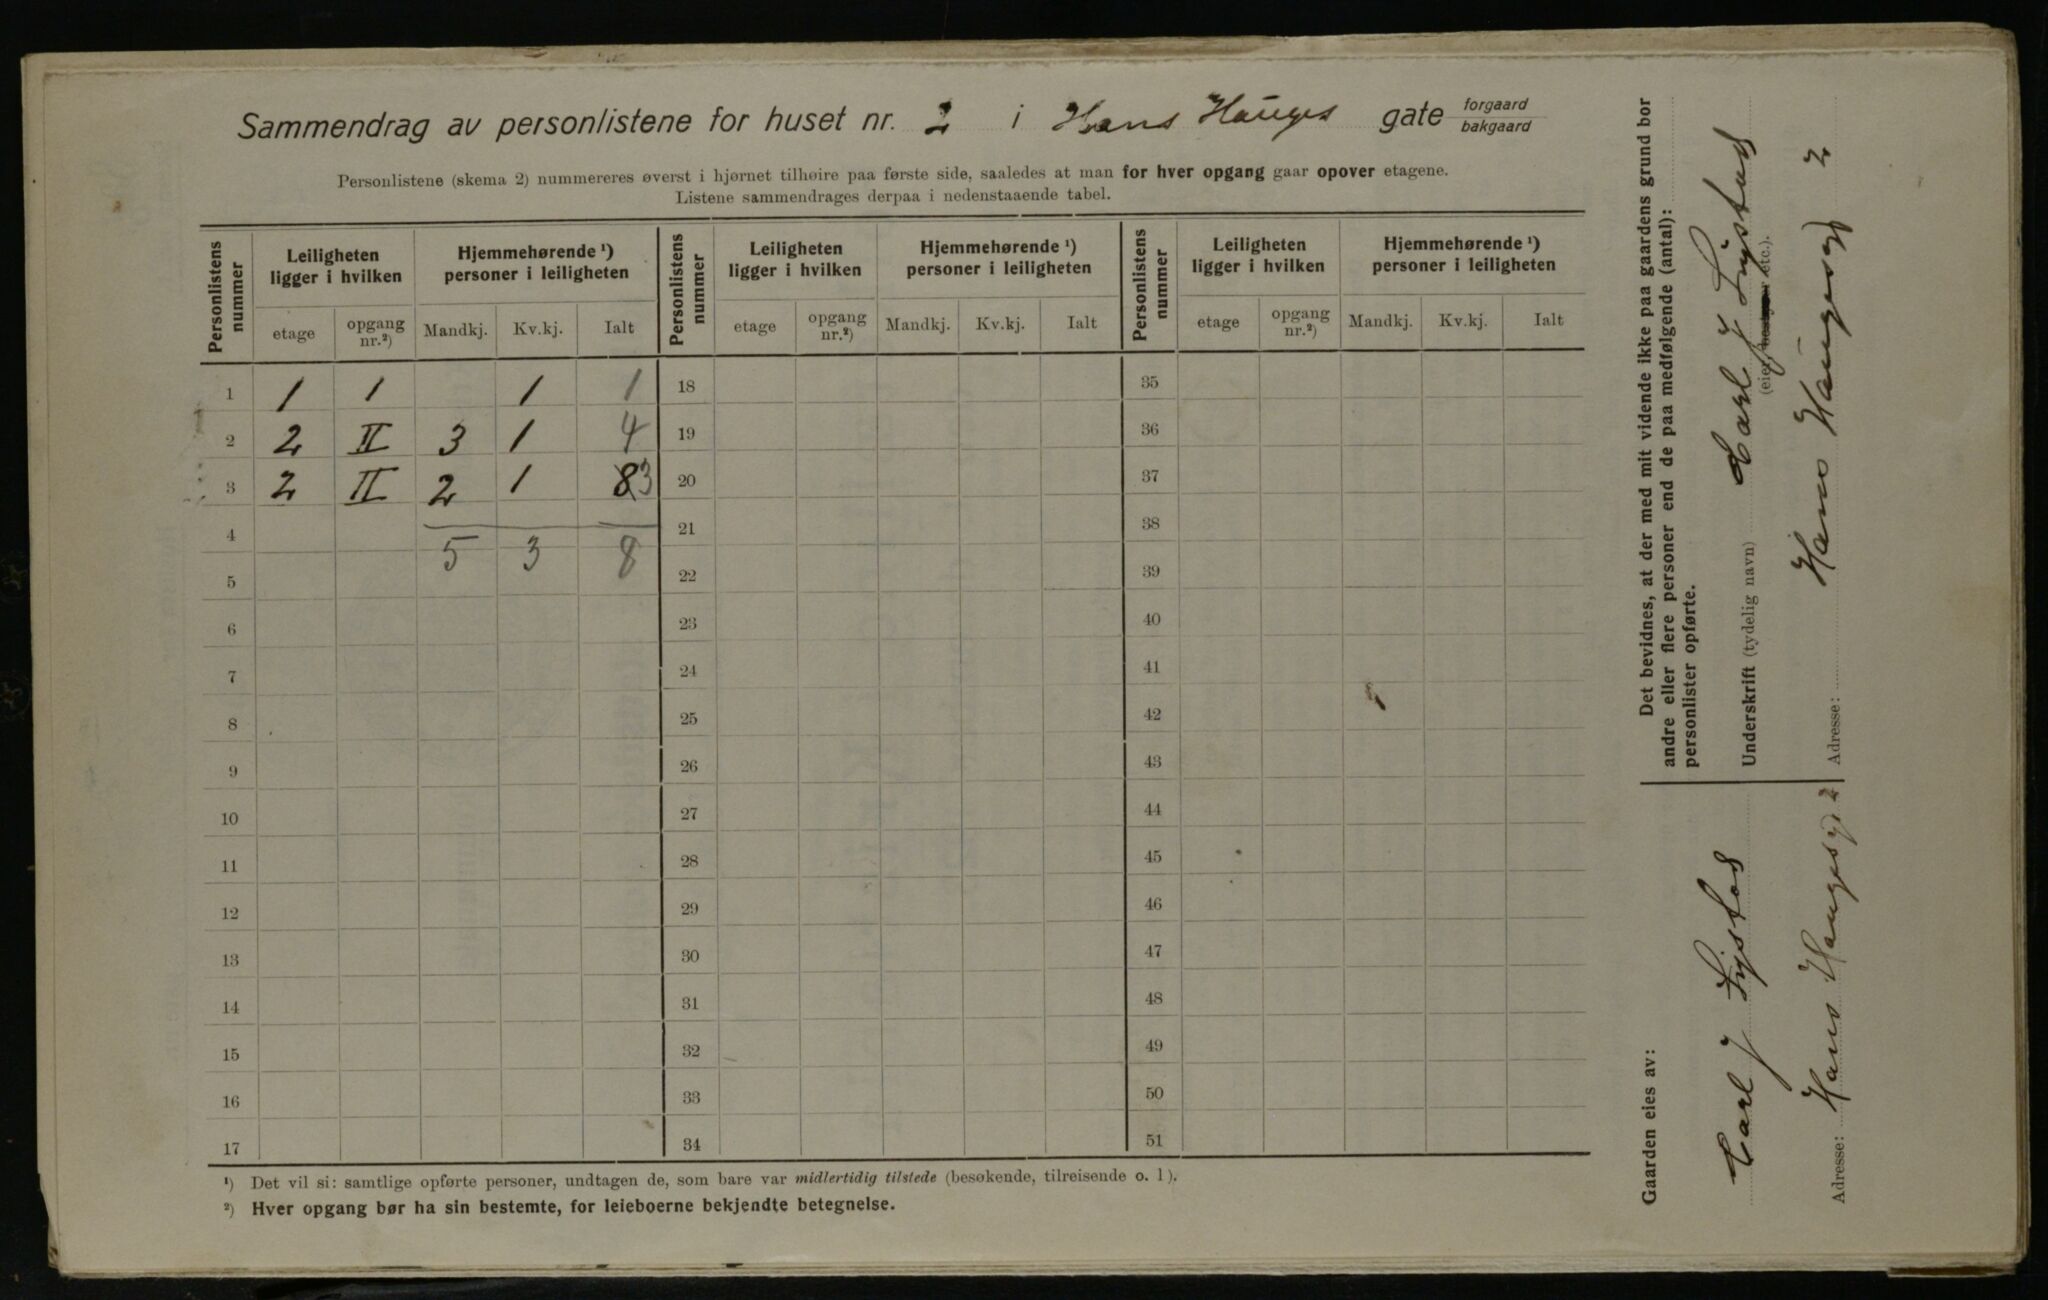 Sammendrag av personlistene for huset nr. 2 i Hans Hauges gate forgaard
bakgaard
Personlistene (skema 2) nummereres øverst i hjørnet tilhøire paa første side, saaledes at man for hver opgang gaar opover etagene.
Listene sammendrages derpaa i nedenstaaende tabel.
Personlistens nummer
Leiligheten ligger i hvilken
Hjemmehørende ¹) personer i leiligheten
Personlistens nummer
Leiligheten ligger i hvilken
Hjemmehørende ¹) personer i leiligheten
Personlistens nummer
Leiligheten ligger i hvilken
Hjemmehørende ¹) personer i leiligheten
etage opgang nr.²) Mandkj. Kv.kj. Ialt etage opgang nr.²) Mandkj. Kv.kj. Ialt etage opgang nr.²) Mandkj. Kv.kj. Ialt
1 1 1 1 1 18 35
2 2 II 3 1 4 19 36
3 2 II 2 1 83 20 37
4 21 38
5 3 8
5 22 39
6 23 40
7 24 41
8 25 42
9 26 43
10 27 44
11 28 45
12 29 46
13 30 47
14 31 48
15 32 49
16 33 50
17 34 51
¹) Det vil si: samtlige opførte personer, undtagen de, som bare var midlertidig tilstede (besøkende, tilreisende o. l).
²) Hver opgang bør ha sin bestemte, for leieboerne bekjendte betegnelse.
Det bevidnes, at der med mit vidende ikke paa gaardens grund bor
andre eller flere personer end de paa medfølgende (antal):
personlister opførte.
Underskrift (tydelig navn) Carl J
(eier, etc.).
Adresse: Hans Haugesgt 2
Gaarden eies av:
Carl J
Adresse: Hans Haugesgt 2